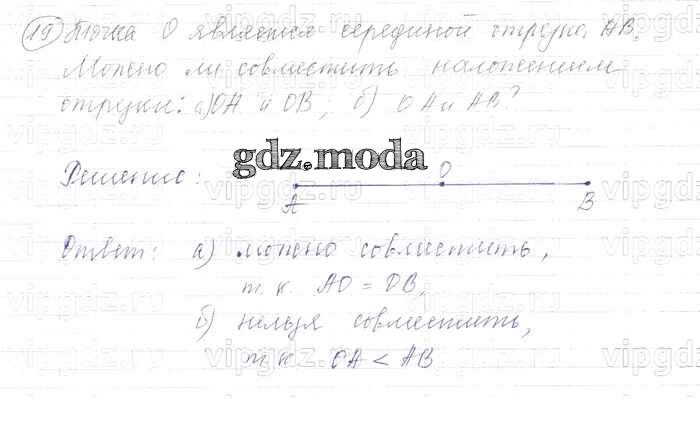 19) Точка O является серединой отрезка AB.
Можно ли совместить наложением
отрезки: а) OA и OB; б) OA и AB?
gdz.moda
Решение:
O
A
B
Ответ: а) можно совместить,
т.к. AO = OB,
б) нельзя совместить,
т.к. OA < AB
vipgdz.ru